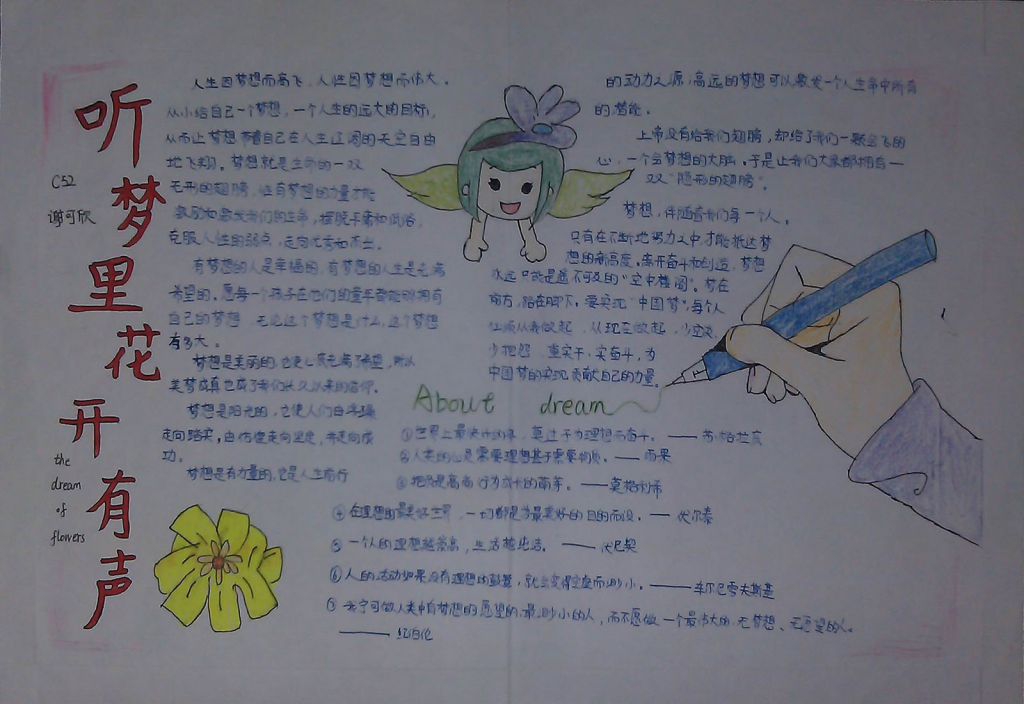 听梦里花开有声
C52
谢可欣
the
dream
of
flowers
人生因梦想而高飞，人性因梦想而伟大。
从小给自己一个梦想，一个人生的远大的目标，
从而让梦想带着自己在人生辽阔的天空自由
地飞翔。梦想就是生命的一双
无形的翅膀，唯有梦想的力量才能
激励和激发我们的生命，摆脱平庸和低俗，
克服人性的弱点，走向优秀和杰出。
有梦想的人是幸福的，有梦想的人生是充满
希望的。愿每一个孩子在他们的童年都能够拥有
自己的梦想，无论这个梦想是什么，这个梦想
有多大。
梦想是美丽的，它使心底充满了希望，所以
美梦成真也成了我们长久以来的信仰。
梦想是阳光的，它使人们由浮躁
走向踏实，由彷徨走向坚定，并走向成
功。
梦想是有力量的，它是人生前行
的动力之源；高远的梦想可以激发一个人生命中所有
的潜能。
上帝没有给我们翅膀，却给了我们一颗会飞的
心，一个会梦想的大脑。于是让我们大家都拥有一
双"隐形的翅膀"。
梦想，伴随着我们每一个人。
只有在不断地努力之中，才能抵达梦
想的新高度。离开奋斗和创造，梦想
永远只能是遥不可及的"空中楼阁"。梦在
前方，路在脚下，要实现"中国梦"，每个人
必须从我做起，从现在做起，少空谈，
少抱怨，重实干，实奋斗，为
中国梦的实现贡献自己的力量。
About dream
①世界上最快乐的事，莫过于为理想而奋斗。——苏格拉底
②人类的心是需要理想甚于需要物质。——雨果
——莫格利希
④在理想的最美好世界，一切都是为最美好的目的而设。——伏尔泰
⑤一个人的理想越崇高，生活越纯洁。——伏尼契
⑥人的活动如果没有理想的鼓舞，就会变得空虚而渺小。——车尔尼雪夫斯基
⑦我宁可做人类中有梦想的愿望的，最渺小的人，而不愿做一个最伟大的，无梦想、无愿望的人。
——纪伯伦